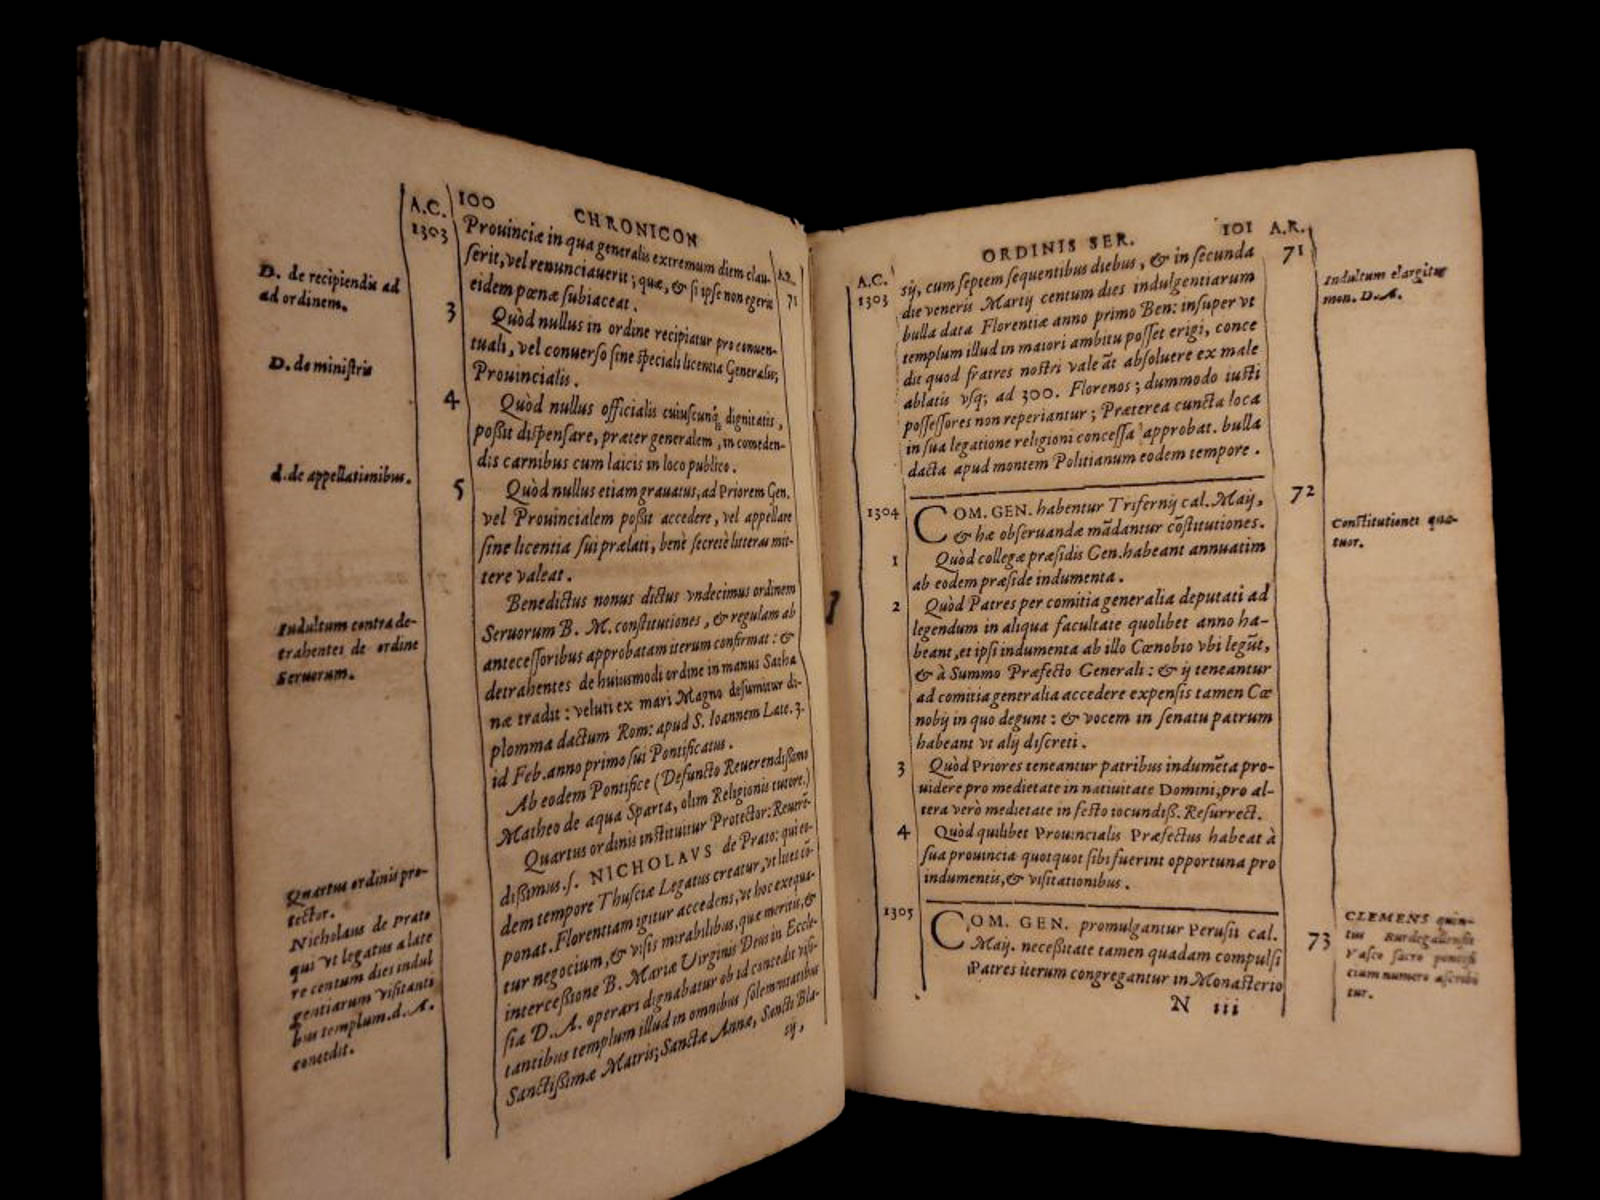 A.C.
100
CHRONICON
A.R.
1303
71
Prouinciæ in qua generalis extremum diem clau-
serit, vel renunciauerit; quæ, & si ipse non egerit
eidem pœnæ subiaceat.
D. de recipiendis ad
ad ordinem.
3
Quòd nullus in ordine recipiatur pro conuen-
tuali, vel conuerso sine speciali licentia Generalis;
Prouincialis.
D. de ministris
4
Quòd nullus officialis cuiuscunq; dignitatis,
possit dispensare, præter generalem, in comeden-
dis carnibus cum laicis in loco publico.
d. de appellationibus.
5
Quòd nullus etiam grauatus, ad Priorem Gen.
vel Prouincialem possit accedere, vel appellare
sine licentia sui prælati, benè secretè litteras mit-
tere valeat.
Benedictus nonus dictus vndecimus ordinem
Seruorum B. M. constitutiones, & regulam ab
antecessoribus approbatam iterum confirmat: &
detrahentes de huiusmodi ordine in manus Satha
næ tradit: veluti ex mari Magno desumitur di-
plomma dactum Rom: apud S. Ioannem Late. 3.
id Feb. anno primo sui Pontificatus.
Indultum contra de-
trahentes de ordine
Seruorum.
Ab eodem Pontifice (Defuncto Reuerendissimo
Matheo de aqua Sparta, olim Religionis tutore.)
Quartus ordinis instituitur Protector: Reuerē-
dissimus. s. NICHOLAVS de Prato: qui eo-
dem tempore Thusciæ Legatus creatur, vt lites cō-
ponat. Florentiam igitur accedens, vt hoc exequa-
tur negocium, & visis mirabilibus, que meritis, &
intercessione B. Mariæ Virginis Deus in Eccle-
sia D. A. operari dignabatur ob id concedit visi-
tantibus templum illud in omnibus solemnitatibus
Sanctissimæ Matris; Sanctæ Annæ, Sancti Bla-
sij,
Quartus ordinis pro-
tector.
Nicholaus de Prato
qui vt legatus a late
re centum dies indul
gentiarum visitanti
bus templum. d. A.
concedit.
A.C.
ORDINIS SER.
101
A.R.
1303
71
sij, cum septem sequentibus diebus, & in secunda
die veneris Martij centum dies indulgentiarum
bulla data Florentiæ anno primo Ben: insuper vt
templum illud in maiori ambitu posset erigi, conce
dit quod fratres nostri valeāt absoluere ex male
ablatis vsq; ad 300. Florenos; dummodo iusti
possessores non reperiantur; Præterea cuncta loca
in sua legatione religioni concessa approbat. bulla
dacta apud montem Politianum eodem tempore.
Indultum elargitur
mon. D. A.
1304
72
COM. GEN. habentur Trifernij cal. Maij,
& hæ obseruandæ mādantur cōstitutiones.
Constitutiones qua-
tuor.
1
Quòd collegæ præsidis Gen. habeant annuatim
ab eodem præside indumenta.
2
Quòd Patres per comitia generalia deputati ad
legendum in aliqua facultate quolibet anno ha-
beant, et ipsi indumenta ab illo Cœnobio vbi legūt,
& à Summo Præfecto Generali: & ij teneantur
ad comitia generalia accedere expensis tamen Cœ
nobij in quo degunt: & vocem in senatu patrum
habeant vt alij discreti.
3
Quòd Priores teneantur patribus indumēta pro-
uidere pro medietate in natiuitate Domini, pro al-
tera verò medietate in festo iocundiss. Resurrect.
4
Quòd quilibet Prouincialis Præfectus habeat à
sua prouincia quotquot sibi fuerint opportuna pro
indumentis, & visitationibus.
1305
73
COM. GEN. promulgantur Perusii cal.
Maij. necessitate tamen quadam compulsi
Patres iterum congregantur in Monasterio
CLEMENS quin-
tus Burdegalensis
Vasco sacro pontifi
cium numero ascribi
tur.
N iii